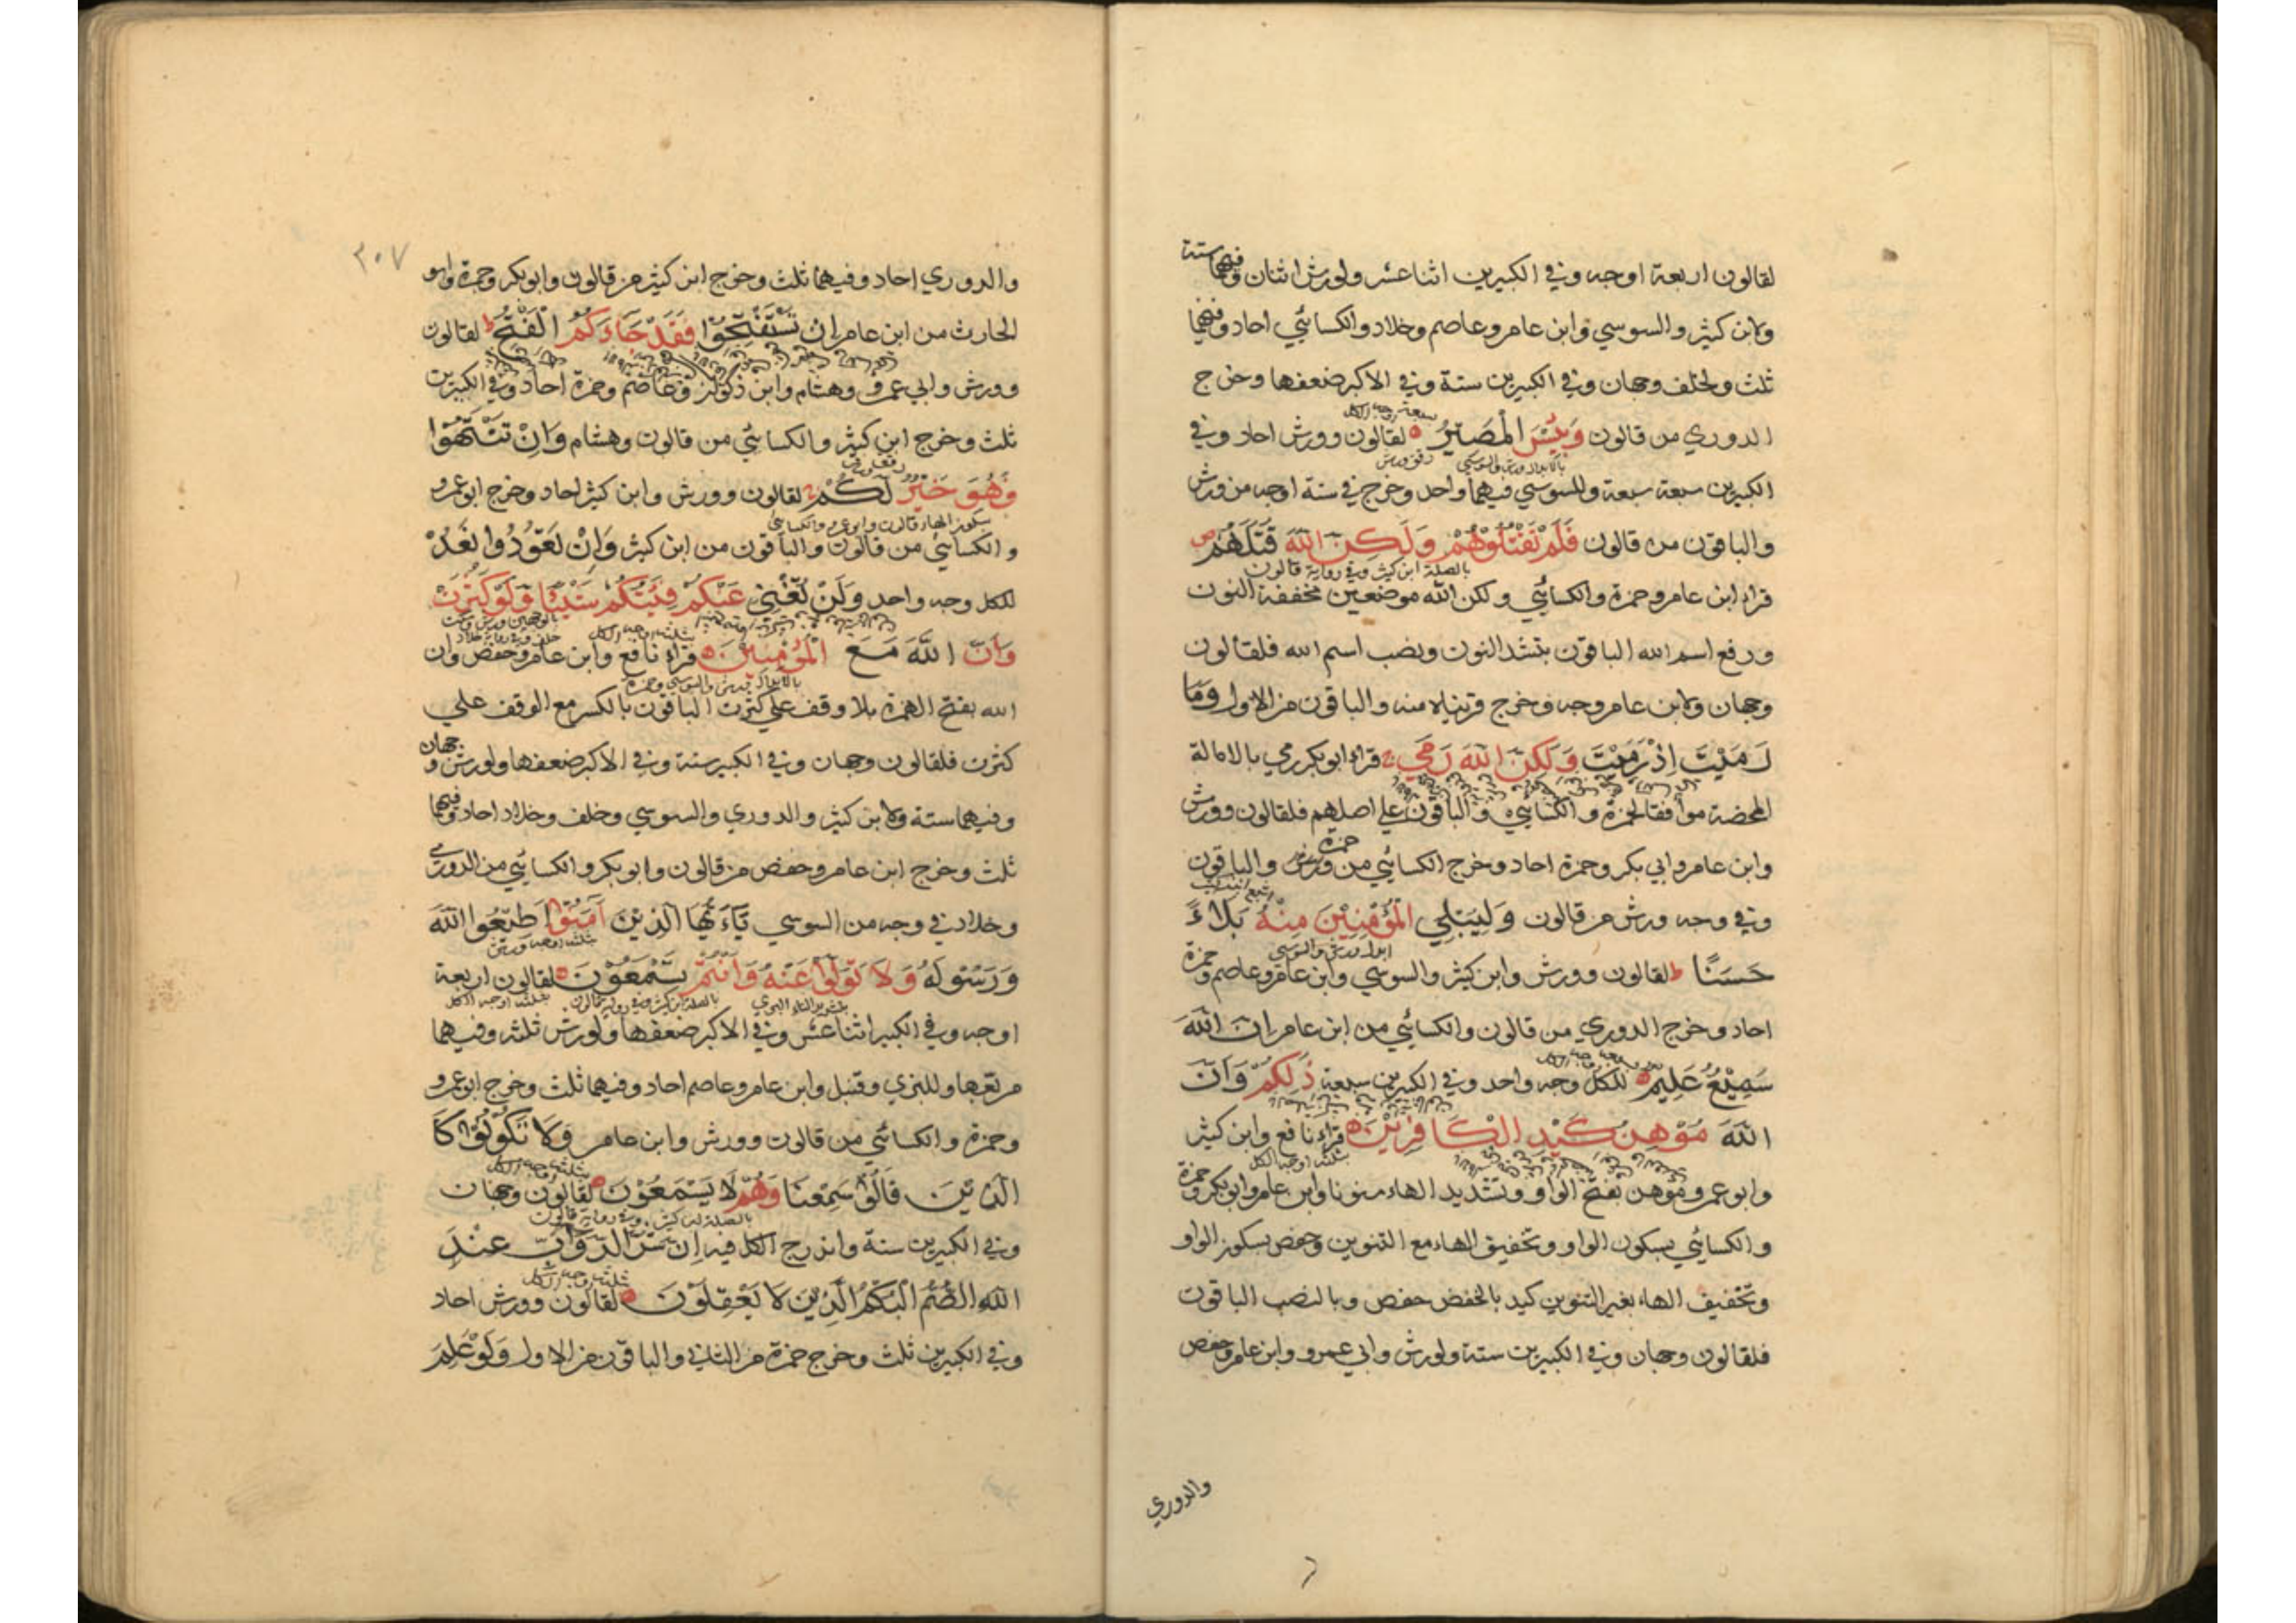 لقالون اربعة اوجه وفي الكبيرين اثنا عشر ولورش اثنان وفيهما ستة
ولابن كثير والسوسي وابن عامر وعاصم وخلاد والكسائي احاد وفيهما
ثلث ولخلف وجهان وفي الكبيرين ستة وفي الاكبر ضعفها وخرج
الدوري من قالون وَبِئْسَ الْمَصِيْرُ لقالون وورش احاد وفي
الكبيرين سبعة سبعة وللسوسي فيهما واحد وخرج في ستة اوجه من ورش
والباقون من قالون فَلَمْ تَقْتُلُوْهُمْ وَلَكِنَّ اللّٰهَ قَتَلَهُمْ ص
بالصلة ابن كثير وفي رواية قالون
قراء ابن عامر وحمزة والكسائي ولكن الله موضعين مخففة النون
ورفع اسم الله الباقون بتشد النون ونصب اسم الله فلقالون
وجهان ولابن عامر وجه وخرج قريناه منه والباقون من الاول وَمَا
رَمَيْتَ اِذْ رَمَيْتَ وَلَكِنَّ اللّٰهَ رَمَى ج قراء ابو بكر رمي بالامالة
المحضة موافقا لحمزة والكسائي والباقون علي اصلهم فلقالون وورش
وابن عامر وابي بكر وحمزة احاد وخرج الكسائي من حمزة والباقون
وفي وجه ورش من قالون وَلِيُبْلِيَ الْمُؤْمِنِيْنَ مِنْهُ بَلَاءً
حَسَنًا ط لقالون وورش وابن كثير والسوسي وابن عامر وعاصم وحمزة
احاد وخرج الدوري من قالون والكسائي من ابن عامر اِنَّ اللّٰهَ
سَمِيْعٌ عَلِيْمٌ للكل وجه واحد وفي الكبيرين سبعة ذٰلِكُمْ وَاَنَّ
اللّٰهَ مُوْهِنُ كَيْدِ الْكَافِرِيْنَ قراء نافع وابن كثير
بثلثة اوجه الكل
وابو عمرو موهن بفتح الواو وتشديد الهاء منونا وابن عامر وابو بكر وحمزة
والكسائي بسكون الواو وتخفيف الهاء مع التنوين وحفص بسكون الواو
وتخفيف الهاء بغير التنوين كيد بالخفض حفص وبالنصب الباقون
فلقالون وجهان وفي الكبيرين ستة ولورش وابي عمرو وابن عامر وحفص
والدوري
٣٠٧
والدوري احاد وفيهما ثلث وخرج ابن كثير من قالون وابو بكر وحمزة وابو
الحارث من ابن عامر اِنْ تَسْتَفْتِحُوْا فَقَدْ جَاءَكُمُ الْفَتْحُ ط لقالون
وورش وابي عمرو وهشام وابن ذكوان وعاصم وحمزة احاد وفي الكبيرين
ثلث وخرج ابن كثير والكسائي من قالون وهشام وَاِنْ تَنْتَهُوْا
فَهُوَ خَيْرٌ لَكُمْ ج لقالون وورش وابن كثير احاد وخرج ابو عمرو
بسكون الهاء قالون وابو عمرو والكسائي
والكسائي من قالون والباقون من ابن كثير وَاِنْ تَعُوْدُوا نَعُدْ
للكل وجه واحد وَلَنْ تُغْنِيَ عَنْكُمْ فِئَتُكُمْ شَيْئًا وَلَوْ كَثُرَتْ
وَاَنَّ اللّٰهَ مَعَ الْمُؤْمِنِيْنَ قراء نافع وابن عامر وحفص وان
بالابدال ورش والسوسي وحمزة
الله بفتح الهمزة بلا وقف علي كثرت الباقون بالكسر مع الوقف علي
كثرت فلقالون وجهان وفي الكبير ستة وفي الاكبر ضعفها ولورش وجهان
وفيهما ستة ولابن كثير والدوري والسوسي وخلف وخلاد احاد وفيهما
ثلث وخرج ابن عامر وحفص من قالون وابو بكر والكسائي من الدوري
وخلاد في وجه من السوسي يَآ اَيُّهَا الَّذِيْنَ اٰمَنُوْا اَطِيْعُوا اللّٰهَ
وَرَسُوْلَهُ وَلَا تَوَلَّوْا عَنْهُ وَاَنْتُمْ تَسْمَعُوْنَ لقالون اربعة
اوجه وفي الكبير اثنا عشر وفي الاكبر ضعفها ولورش ثلثه وفيهما
مربعها وللبزي وقنبل وابن عامر وعاصم احاد وفيهما ثلث وخرج ابو عمرو
وحمزة والكسائي من قالون وورش وابن عامر وَلَا تَكُوْنُوْا كَا
الَّذِيْنَ قَالُوْا سَمِعْنَا وَهُمْ لَا يَسْمَعُوْنَ لقالون وجهان
بالصلة ابن كثير وفي رواية قالون
وفي الكبيرين ستة واندرج الكل فيه اِنَّ شَرَّ الدَّوَآبِّ عِنْدَ
اللّٰهِ الصُّمُّ الْبُكْمُ الَّذِيْنَ لَا يَعْقِلُوْنَ لقالون وورش احاد
وفي الكبيرين ثلث وخرج حمزة من الثاني والباقون من الاول وَلَوْ عَلِمَ